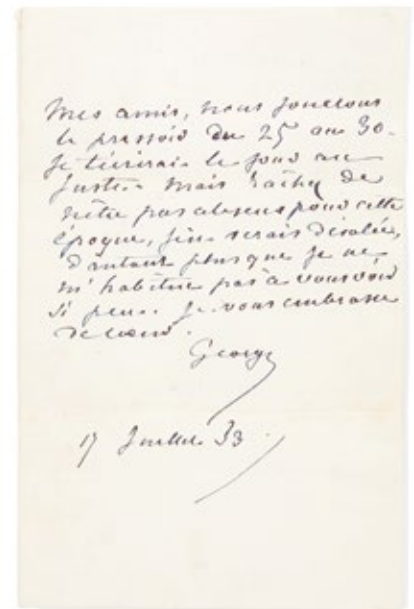 Mes amis, nous jouerons
le pressoir du 25 au 30.
Je le jour au
juste. Mais tâchez de
n'être pas absens pour cette
époque, j'en serais désolée,
d'autant plus que je ne
m'habitue pas à vous voir
si peu. Je vous embrasse
de cœur.
George
17 Juillet